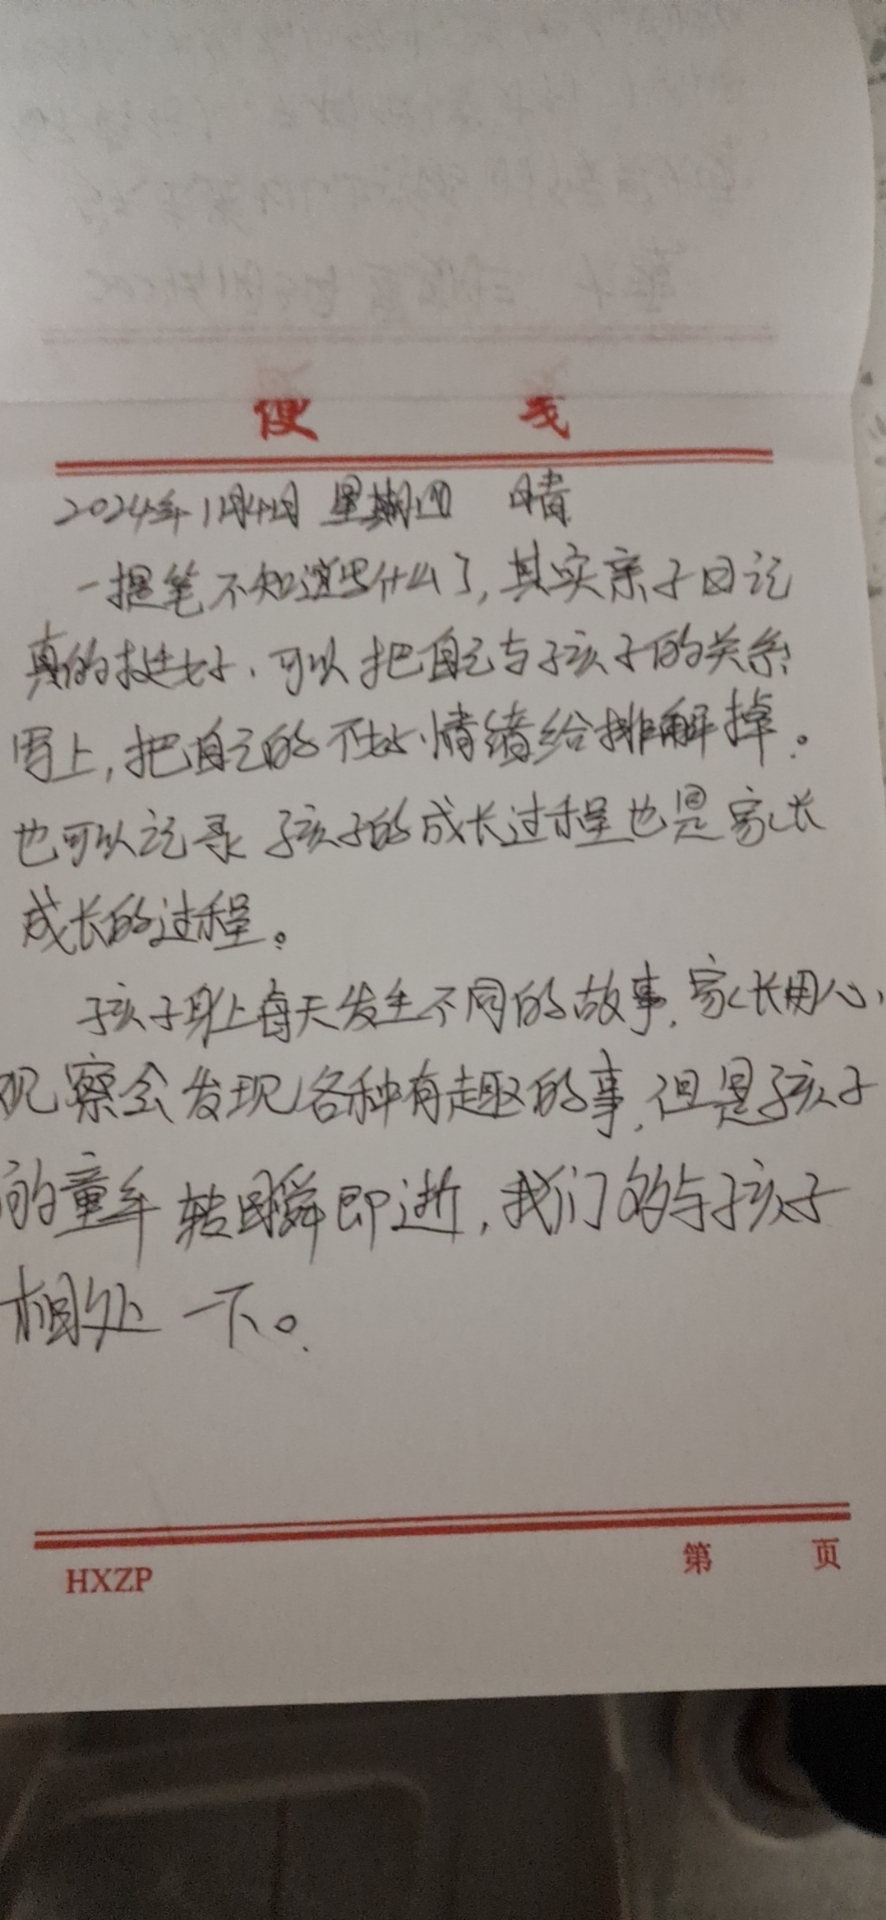 便 笺
2024年1月4日 星期四 晴
一提笔不知道些什么了,其实亲子日记
真的挺好,可以把自己与孩子的关系
写上,把自己的不好情绪给排解掉。
也可以记录孩子的成长过程也是家长
成长的过程。
孩子身上每天发生不同的故事,家长用心
观察会发现各种有趣的事,但是孩子
的童年转瞬即逝,我们多与孩子
相处一下。
HXZP 第 页